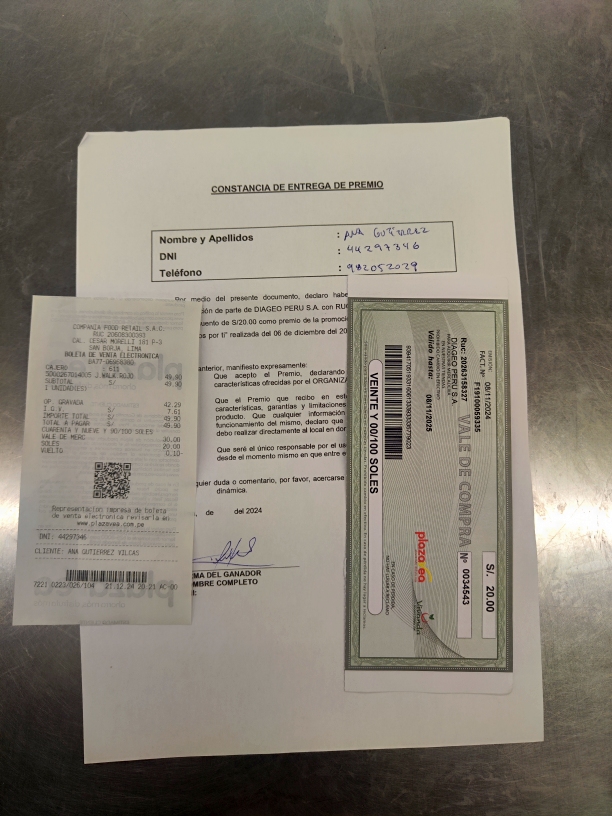 CONSTANCIA DE ENTREGA DE PREMIO
Nombre y Apellidos : Ana Gutierrez
DNI : 44297346
Teléfono : 942052029
Por medio del presente documento, declaro habe
ción de parte de DIAGEO PERU S.A. con RU
uento de S/20.00 como premio de la promoci
os por ti" realizada del 06 de diciembre del 20
anterior, manifiesto expresamente:
Que acepto el Premio, declarando
características ofrecidas por el ORGANIZA
Que el Premio que recibo en este
características, garantías y limitaciones
producto. Que cualquier información
funcionamiento del mismo, declaro que
debo realizar directamente al local en don
Que seré el único responsable por el us
desde el momento mismo en que entre e
quier duda o comentario, por favor, acercarse
dinámica.
, de del 2024
MA DEL GANADOR
MBRE COMPLETO
COMPAÑIA FOOD RETAIL S.A.C.
RUC 20608300393
CAL. CESAR MORELLI 181 P-3
SAN BORJA, LIMA
BOLETA DE VENTA ELECTRONICA
CAJERO : 611
J.WALK ROJO 49.90
SUBTOTAL S/ 49.90
1 UNIDAD(ES)
OP. GRAVADA 42.29
I.G.V. S/ 7.61
IMPORTE TOTAL S/ 49.90
TOTAL A PAGAR S/ 49.90
CUARENTA Y NUEVE Y 90/100 SOLES
VALE DE MERC 30.00
SOLES 20.00
VUELTO 0.10
Representación impresa de boleta
de venta electrónica revisarla en
www.plazavea.com.pe
DNI: 44297346
CLIENTE: ANA GUTIERREZ VILCAS
21.12.24 20:21 AC-00
EMISIÓN: 08/11/2024
FACT. Nº
VALE DE COMPRA Nº 0034543
S/. 20.00
Ruc: 20263158327
DIAGEO PERU S.A.
Válido hasta: 08/11/2025
VEINTE Y 00/100 SOLES
plazavea
Vivanda